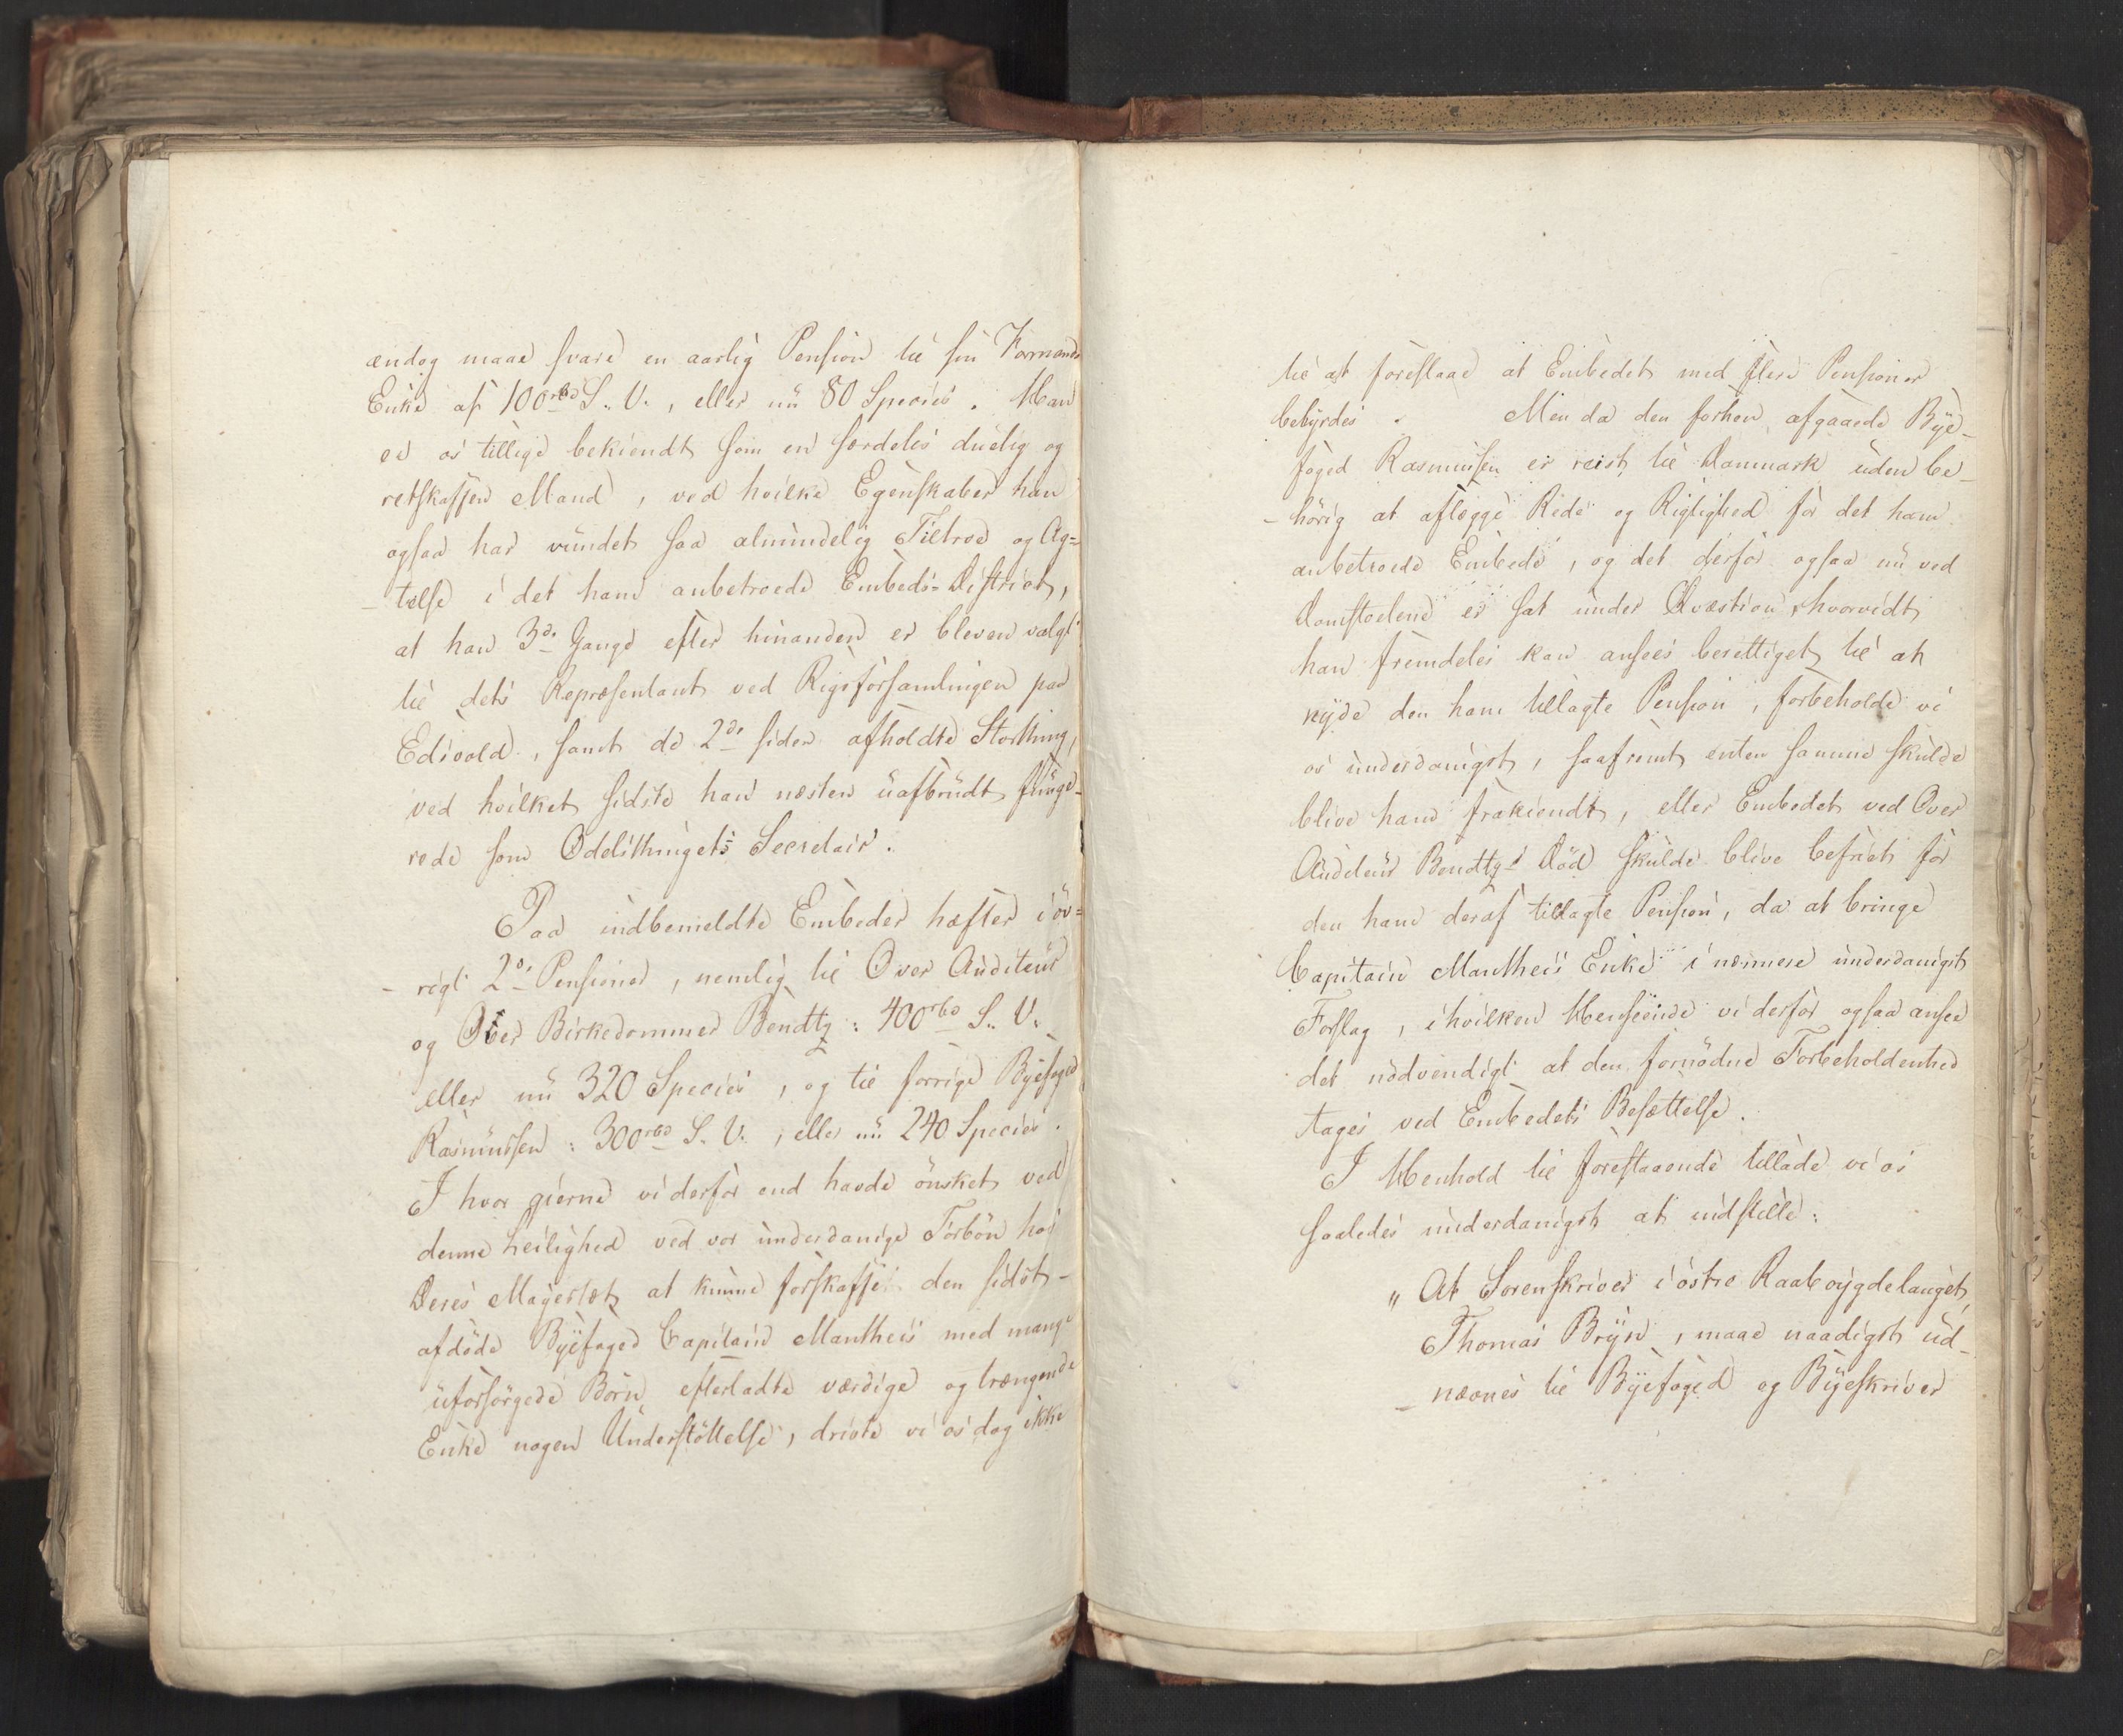 endog maae svare en aarlig Pension til sin Formands
Enke af 100 rbd S. V., eller nu 80 Species. Han
er os tillige bekiendt som en særdeles duelig og
retskaffen Mand, ved hvilke Egenskaber han
ogsaa har vundet saa almindelig Tiltroe og Ag=
-telse i det ham anbetroede Embeds-District,
at han 3de Gange efter hinanden er bleven valgt
til dets Repræsentant ved Rigsforsamlingen paa
Edsvold, samt de 2de siden afholdte Storthing,
ved hvilket sidste han næsten uafbrudt funge-
rede som Odelsthingets Secretair.
Paa indbemeldte Embeder hæfter iøv=
-rigt 2de Pensioner, nemlig til Over Auditeur
og Over Birkedommer Bendtz: 400 rbd S. V.
eller nu 320 Species, og til forrige Byefoged
Rasmussen: 300 rbd S. V., eller nu 240 Species.
I hvor gierne vi derfor end havde ønsket ved
denne Leilighed ved vor underdanige Forbøn hos
Deres Majestæt at kunne forskaffe den sidst-
afdøde Byefoged Capitain Mantheis med mange
uforsørgede Børn efterladte værdige og trængende
Enke nogen Understøttelse, driste vi os dog ikke
til at foreslaae at Embedet med flere Pensioner
bebyrdes. Men da den forhen afgaaede Bye-
foged Rasmussen er reist til Danmark uden be-
-hørig at aflægge Rede og Rigtighed for det ham
anbetroede Embede, og det derfor ogsaa nu ved
Domstolene er sat under Qvæstion, hvorvidt
han fremdeles kan ansees berettiget til at
nyde den ham tillagte Pension, forbeholde vi
os underdanigst, saafremt enten samme skulde
blive ham frakiendt, eller Embedet ved Over
Auditeur Bendtz's Død skulde blive befriet for
den ham deraf tillagte Pension, da at bringe
Capitain Mantheis Enke i nærmere underdanigst
Forslag, i hvilken Henseende vi derfor ogsaa ansee
det nødvendigt at den fornødne Forbeholdenhed
tages ved Embedets Besættelse.
I Henhold til forestaaende tillade vi os
saaledes underdanigst at indstille:
"At Sorenskriver i østre Raabøygdelauget,
Thomas Bryn, maae naadigst ud-
-nævnes til Byefoged og Byeskriver